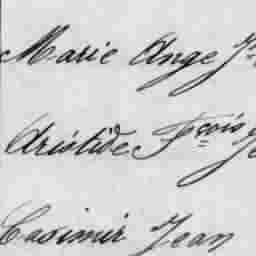 Marie Ange
Aristide Fçois
Casimir Jean